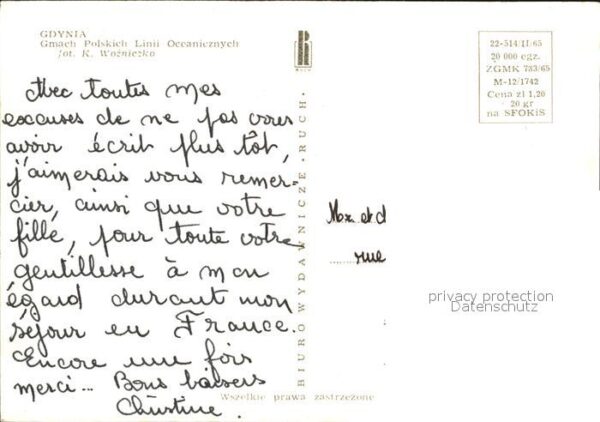 GDYNIA
Gmach Polskich Linii Oceanicznych
fot. K. Woźniczko
Avec toutes mes
excuses de ne pas vous
avoir écrit plus tôt,
j'aimerais vous remer-
cier, ainsi que votre
fille, pour toute votre
gentillesse à mon
égard durant mon
séjour en France.
Encore une fois
merci... Bons baisers
Christine.
BIURO WYDAWNICZE „RUCH”
RUCH
22-514/II/65
20 000 egz.
ZGMK 733/65
M-12/1742
Cena zł 1,20
20 gr
na SFOKiS
et
rue
privacy protection
Datenschutz
Wszelkie prawa zastrzeżone